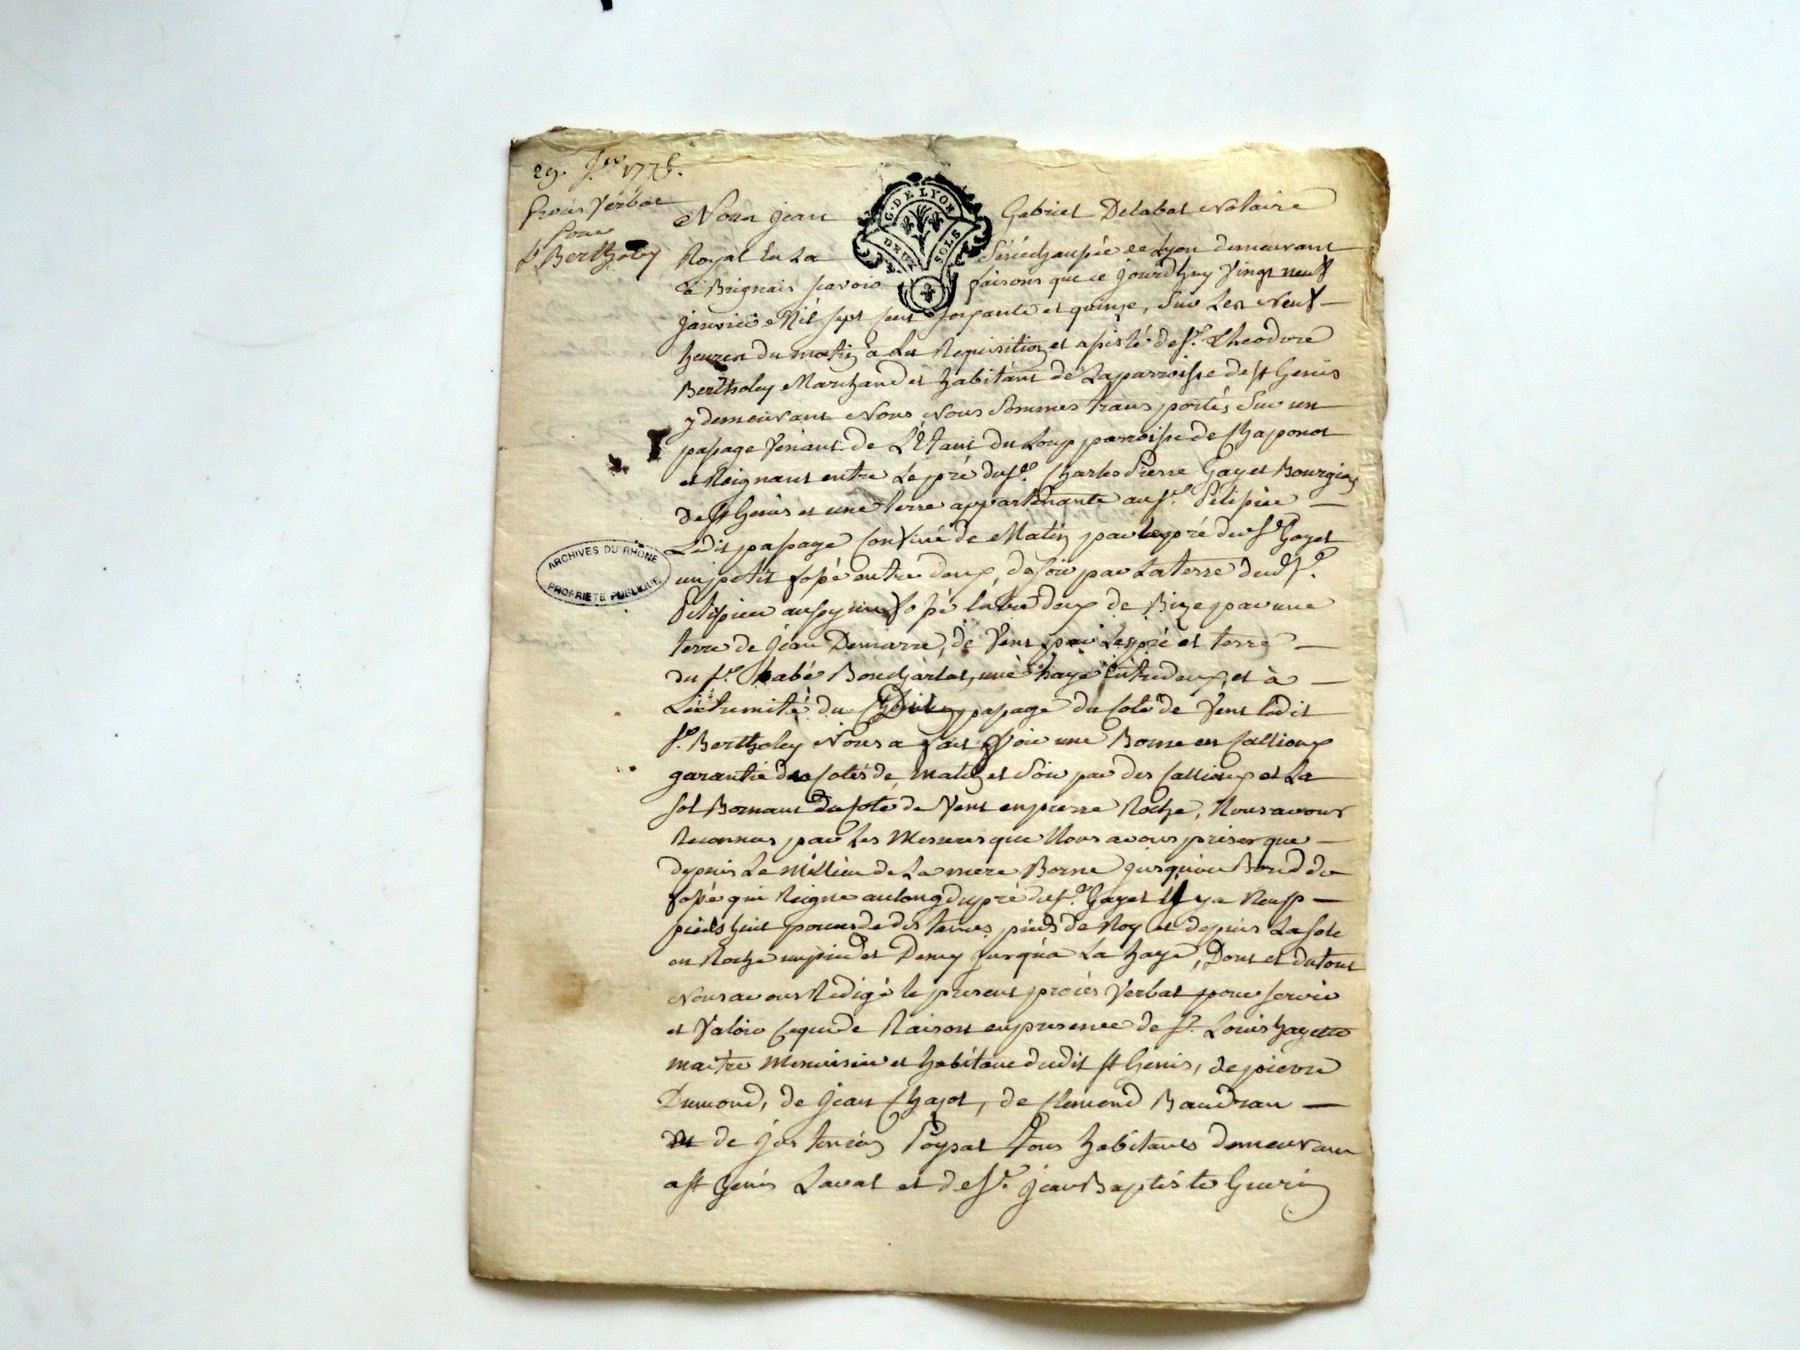 29. Jer 1775.
Procès Verbal
Pour
Sr Bertholey
G. DE LYON
DEUX SOLS
Nous Jean Gabriel Delabat Notaire
Royal En La Sénéchaussée de Lyon demeurant
à Brignais scavoir faisons que ce jourdhuy vingt neuf
janvier Mil sept cent soixante et quinze, sur Les Neuf
heures du matin à La Requisition et assisté de Sr. Theodore
Bertholey Marchand et habitant de La parroisse de st Genis
y demeurant Nous Nous sommes transportés sur un
passage Venant de L'Etant du Loup parroisse de Chaponot
et Reignant entre Le pré du Sr. Charles Pierre Gayet Bourgeois
de st Genis et une terre appartenante au Sr. Pelissier
Ledit passage Confiné de Matin par Le pré du Sr Gayet
un petit fossé entre deux, de soir par La terre dud. Sr.
Pelissier aussy un fossé Entre deux de Bize par une
terre de Jean Demarre, de Vent par Les pré et terre
du Sr. habé Bourjarlat, une haye Entredeux, et à
L'éxtremité du Chd passage du Coté de Vent Ledit
Sr. Bertholey Nous a fait Voir une Borne en Callioux
garantie des Cotés de matin et soir par des Callioux et La
sol Bornant du Coté de Vent en pierre Roche, Nous avons
Reconnus par Les Mesures que Nous avons prises que
depuis Le millieu de La mere Borne jusqu'au Bord du
fossé qui Reigne au long du pré du Sr. Gayet Il y a Neuf
pieds huit pouces de distance, pieds de Roy et depuis La sole
en Roche un pied et Demy jusqu'à La haye, Dont et du tout
Nous avons Redigé le present procès Verbal pour servir
et Valoir Ceque de Raison en presence de Sr. Louis hayette
maitre Menuisier et habitant dudit st Genis, de pierre
Dumond, de Jean Chazot, de Clemend Baudran
de Poysat Tous habitants demeurant
a st Genis Laval et de Sr. Jean Baptiste Guerin
ARCHIVES DU RHONE
PROPRIETE PUBLIQUE